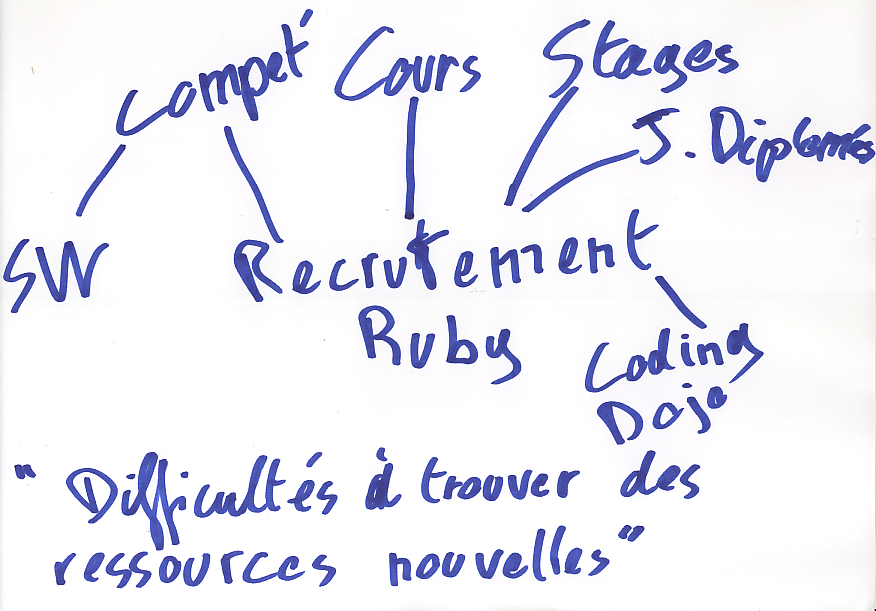 Compet' Cours Stages
J. Diplomés
SW Recrutement
Ruby
Coding
Dojo
" Difficultés à trouver des
ressources nouvelles "